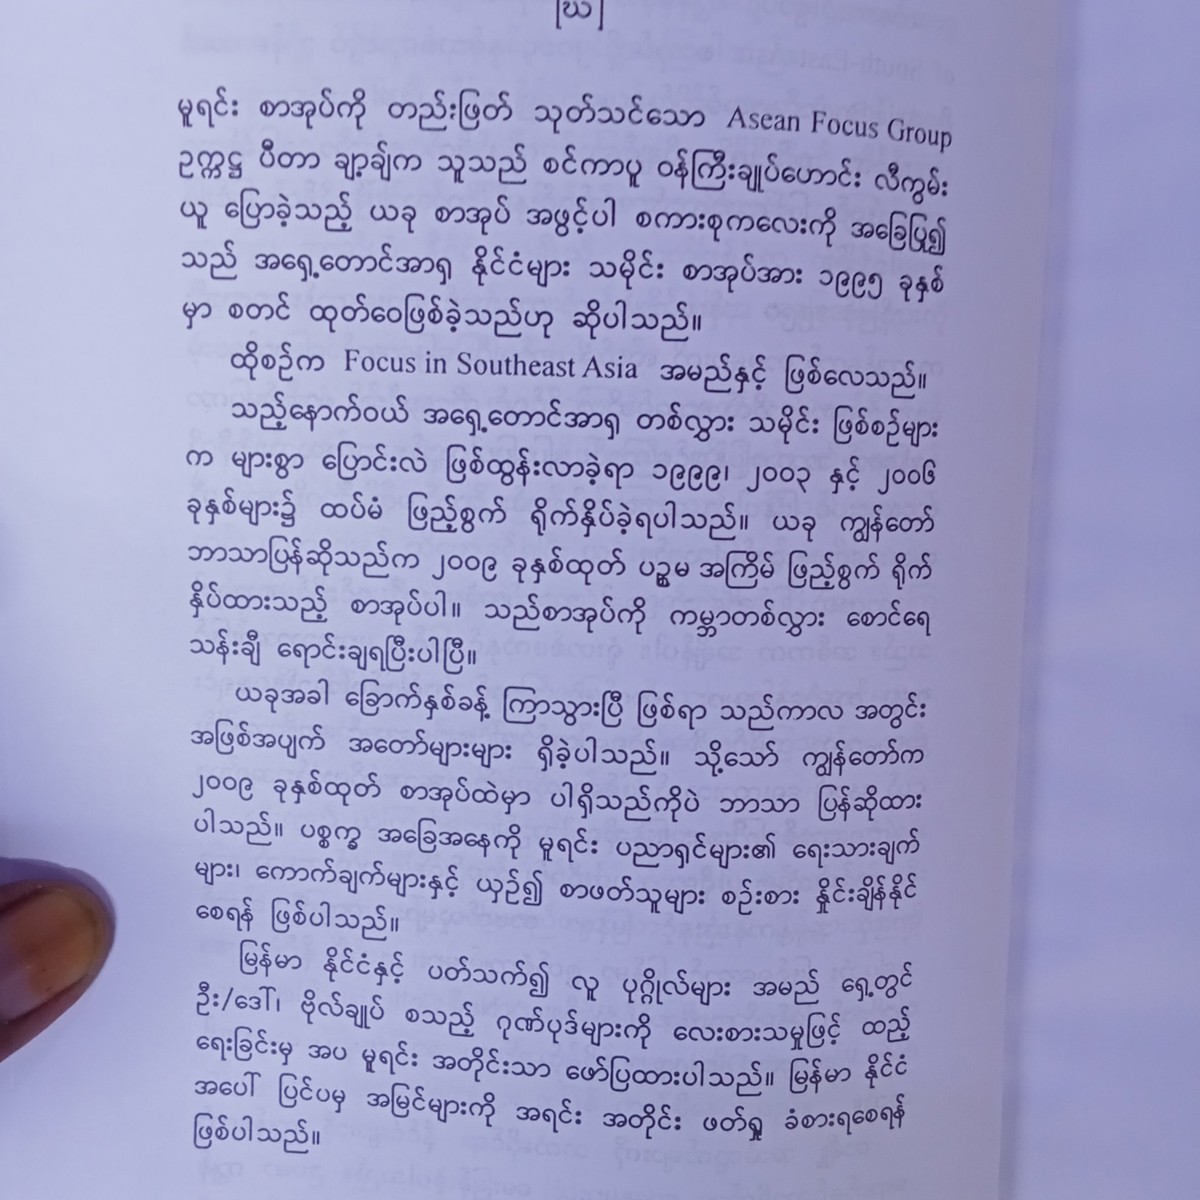 [ဃ]
မူရင်း စာအုပ်ကို တည်းဖြတ် သုတ်သင်သော Asean Focus Group
ဥက္ကဋ္ဌ ပီတာ ချာ့ချ်က သူသည် စင်ကာပူ ဝန်ကြီးချုပ်ဟောင်း လီကွမ်း
ယူ ပြောခဲ့သည့် ယခု စာအုပ် အဖွင့်ပါ စကားစုကလေးကို အခြေပြု၍
သည် အရှေ့တောင်အာရှ နိုင်ငံများ သမိုင်း စာအုပ်အား ၁၉၉၅ ခုနှစ်
မှာ စတင် ထုတ်ဝေဖြစ်ခဲ့သည်ဟု ဆိုပါသည်။
ထိုစဉ်က Focus in Southeast Asia အမည်နှင့် ဖြစ်လေသည်။
သည့်နောက်ဝယ် အရှေ့တောင်အာရှ တစ်လွှား သမိုင်း ဖြစ်စဉ်များ
က များစွာ ပြောင်းလဲ ဖြစ်ထွန်းလာခဲ့ရာ ၁၉၉၉၊ ၂၀၀၃ နှင့် ၂၀၀၆
ခုနှစ်များ၌ ထပ်မံ ဖြည့်စွက် ရိုက်နှိပ်ခဲ့ရပါသည်။ ယခု ကျွန်တော်
ဘာသာပြန်ဆိုသည်က ၂၀၀၉ ခုနှစ်ထုတ် ပဉ္စမ အကြိမ် ဖြည့်စွက် ရိုက်
နှိပ်ထားသည့် စာအုပ်ပါ။ သည်စာအုပ်ကို ကမ္ဘာတစ်လွှား စောင်ရေ
သန်းချီ ရောင်းချရပြီးပါပြီ။
ယခုအခါ ခြောက်နှစ်ခန့် ကြာသွားပြီ ဖြစ်ရာ သည်ကာလ အတွင်း
အဖြစ်အပျက် အတော်များများ ရှိခဲ့ပါသည်။ သို့သော် ကျွန်တော်က
၂၀၀၉ ခုနှစ်ထုတ် စာအုပ်ထဲမှာ ပါရှိသည်ကိုပဲ ဘာသာ ပြန်ဆိုထား
ပါသည်။ ပစ္စက္ခ အခြေအနေကို မူရင်း ပညာရှင်များ၏ ရေးသားချက်
များ၊ ကောက်ချက်များနှင့် ယှဉ်၍ စာဖတ်သူများ စဉ်းစား နှိုင်းချိန်နိုင်
စေရန် ဖြစ်ပါသည်။
မြန်မာ နိုင်ငံနှင့် ပတ်သက်၍ လူ ပုဂ္ဂိုလ်များ အမည် ရှေ့တွင်
ဦး/ဒေါ်၊ ဗိုလ်ချုပ် စသည့် ဂုဏ်ပုဒ်များကို လေးစားသမှုဖြင့် ထည့်
ရေးခြင်းမှ အပ မူရင်း အတိုင်းသာ ဖော်ပြထားပါသည်။ မြန်မာ နိုင်ငံ
အပေါ် ပြင်ပမှ အမြင်များကို အရင်း အတိုင်း ဖတ်ရှု ခံစားရစေရန်
ဖြစ်ပါသည်။